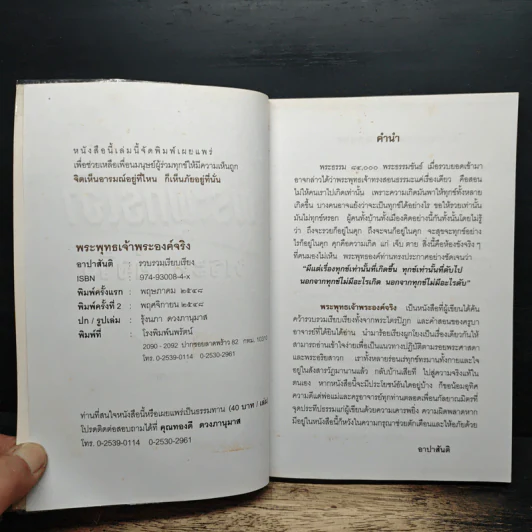 หนังสือนี้เล่มนี้จัดพิมพ์เผยแพร่
เพื่อช่วยเหลือเพื่อนมนุษย์ผู้ร่วมทุกข์ให้มีความเห็นถูก
จิตเห็นอารมณ์อยู่ที่ไหน ก็เห็นภัยอยู่ที่นั่น
พระพุทธเจ้าพระองค์จริง
อาปาสันติ รวบรวมเรียบเรียง
ISBN 974-93008-4-x
พิมพ์ครั้งแรก : พฤษภาคม ๒๕๔๘
พิมพ์ครั้งที่ 2 : พฤศจิกายน ๒๕๔๘
ปก / รูปเล่ม : รุ้งนภา ดวงภานุมาส
พิมพ์ที่ : โรงพิมพ์นพรัตน์
2090 - 2092 ปากซอยลาดพร้าว 82 กทม.
โทร. 0-2539-0114 0-2530-2961
ท่านที่สนใจหนังสือนี้หรือเผยแพร่เป็นธรรมทาน (40 บาท / เล่ม)
โปรดติดต่อสอบถามได้ที่ คุณทองดี ดวงภานุมาส
โทร. 0-2539-0114 0-2530-2961
คำนำ
พระธรรม ๘๔,๐๐๐ พระธรรมขันธ์ เมื่อรวบยอดเข้ามา
อาจกล่าวได้ว่าพระพุทธเจ้าทรงสอนธรรมะแค่เรื่องเดียว คือสอน
ไม่ให้คนเราไปเกิดเท่านั้น เพราะความเกิดมันพาให้ทุกข์ทั้งหลาย
เกิดขึ้น บางคนอาจแย้งว่าจะเป็นทุกข์ได้อย่างไร ขอให้รวยเท่านั้น
มันไม่ทุกข์หรอก ผู้คนทั้งบ้านทั้งเมืองคิดอย่างนี้กันทั้งนั้นโดยไม่รู้
ว่า ถึงจะรวยก็อยู่ในคุก ถึงจะจนก็อยู่ในคุก จะสุขจะทุกข์อย่าง
ไรก็อยู่ในคุก คุกคือความเกิด แก่ เจ็บ ตาย สิ่งนี้คือห้องขังจริง ๆ
ที่คนมองไม่เห็น พระพุทธองค์ท่านทรงประกาศอย่างชัดเจนว่า
"มีแต่เรื่องทุกข์เท่านั้นที่เกิดขึ้น ทุกข์เท่านั้นที่ดับไป
นอกจากทุกข์ไม่มีอะไรเกิด นอกจากทุกข์ไม่มีอะไรดับ"
พระพุทธเจ้าพระองค์จริง เป็นหนังสือที่ผู้เขียนได้ค้น
คว้ารวบรวมเรียบเรียงทั้งจากพระไตรปิฎก และคำสอนของครูบา
อาจารย์ที่ได้ยินได้อ่าน นำมาร้อยเรียงผูกโยงเป็นเรื่องเดียวกันให้
สามารถอ่านเข้าใจง่ายเพื่อเป็นแนวทางปฏิบัติตามรอยพระศาสดา
และพระอริยสาวก เราทั้งหลายร่อนเร่ทุกข์ทรมานทั้งกายและใจ
อยู่ในสังสารวัฏมานานแล้ว กลับบ้านเสียที ไปสู่ความจริงแท้ใน
ตนเอง หากหนังสือนี้จะมีประโยชน์อันใดอยู่บ้าง ก็ขอน้อมอุทิศ
ความดีแด่พ่อแม่และครูอาจารย์ทุกท่านตลอดเพื่อนกัลยาณมิตรที่
จุดประทีปธรรมแก่ผู้เขียนด้วยความเคารพยิ่ง ความผิดพลาดหาก
มีอยู่ในหนังสือนี้ก็หวังในความกรุณาช่วยตักเตือนและให้อภัยด้วย
อาปาสันติ